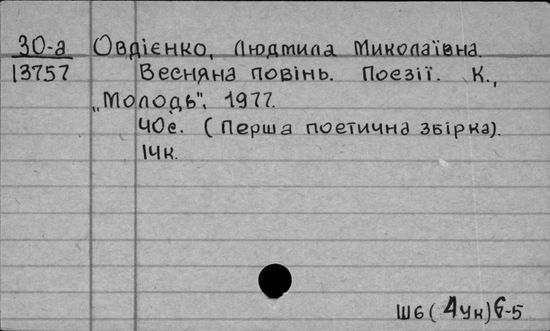 30-а Овдієнко, Людмила Миколаївна.
13757 Весняна повінь. Поезії. К.,
„Молодь", 1977.
40с. (Перша поетична збірка).
14к.
Ш6(4Ук)6-5